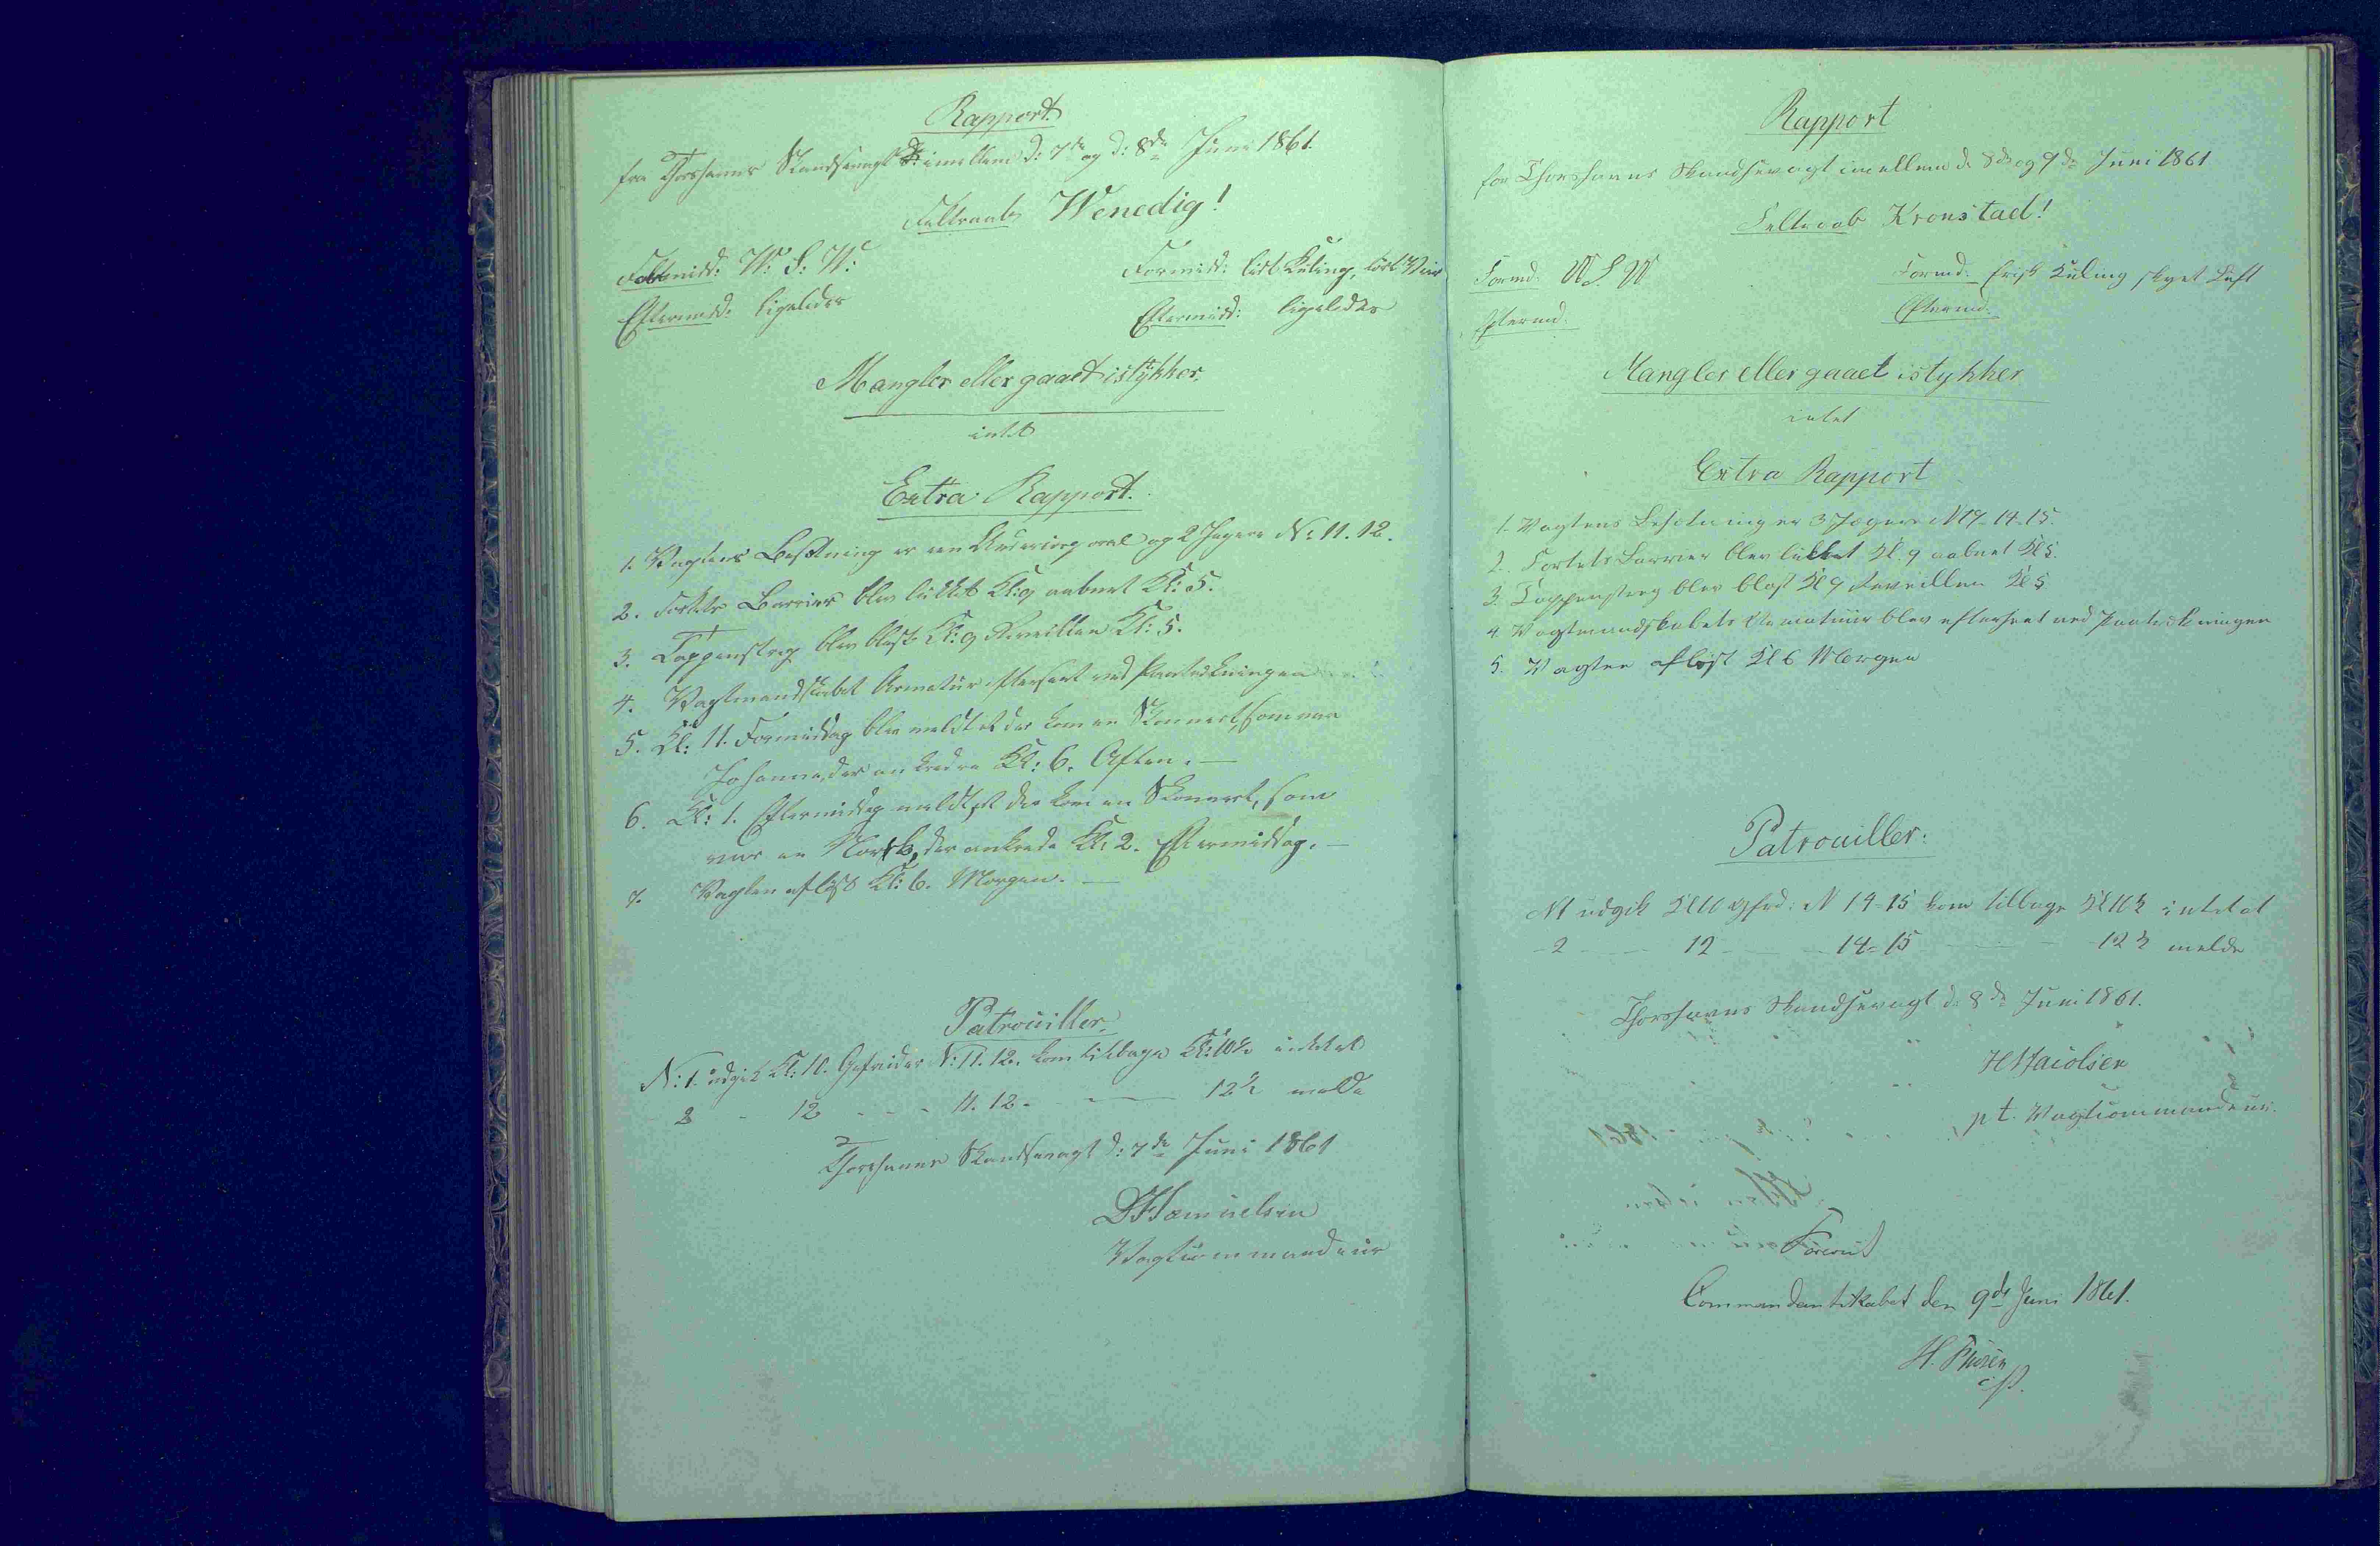 Rapport.
fra Thorshavns Skandsevagt imellem d: 7de og d: 8de Juni 1861.
Feltraab Wenedig!
Formidd: W: S: W:
Formidd: lidt Kuling, lidt
Eftermidd: ligeledes
Eftermidd: ligeledes
Mangler eller gaaet istykker.
intet
Extra Rapport.
1. Vagtens Besætning er een Undercorporal og 2 Jægere No: 11. 12.
2. Fortets Barrier blev lukket Kl: 9 aabnet Kl: 5.
3. Tappenstreg blev blæst Kl: 9 Reveillen Kl: 5.
4. Vagtmandskabet Armatur efterseet ved Paatrækningen
5. Kl: 11. Formiddag blev meldt at der kom en Skonnert, som var
Johanne, der ankrede Kl: 6. Aften. —
6. Kl: 1. Eftermiddag meldt, at der kom en Skonnert, som
var en Norsk, der ankrede Kl: 2. Eftermiddag. —
7. Vagten afløst Kl: 6. Morgen. —
Patrouiller.
N: 1. udgik Kl: 10. Gefreider N: 11. 12. kom tilbage Kl: 10½ intet at
2 - 12 - - - 11. 12. - — 12½ melde
Thorshavns Skandsevagt d: 7de Juni 1861
D Samuelsen
Vagtcommandeur
Rapport
for Thorshavns Skandsevagt imellem d. 8de og 9de Juni 1861
Feltraab Kronstad!
Formd: W S W
Formd: frisk Kuling skyet Luft
Eftermd:
Eftermd:
Mangler eller gaaet istykker
intet
Extra Rapport
1. Vagtens Besætning er 3 Jægere N 17-14-15.
2. Fortets Barrier blev lukket Kl. 9 aabnet Kl 5.
3. Tappenstreg blev blæst Kl 9 Reveillen Kl 5
4. Vagtmandskabets Armatuur blev efterseet ved Paatrækningen
5. Vagten afløst Kl 6 Morgen
Patrouiller:
N1 udgik Kl 10 Gefrd: N 14-15 kom tilbage Kl 10½ intet at
- 2 — 12 - — 14-15 — 12½ melde
Thorshavns Skandsevagt d. 8de Juni 1861.
pt. Vagtcommandeur.
Foreviist
Commandantskabet den 9de Juni 1861.